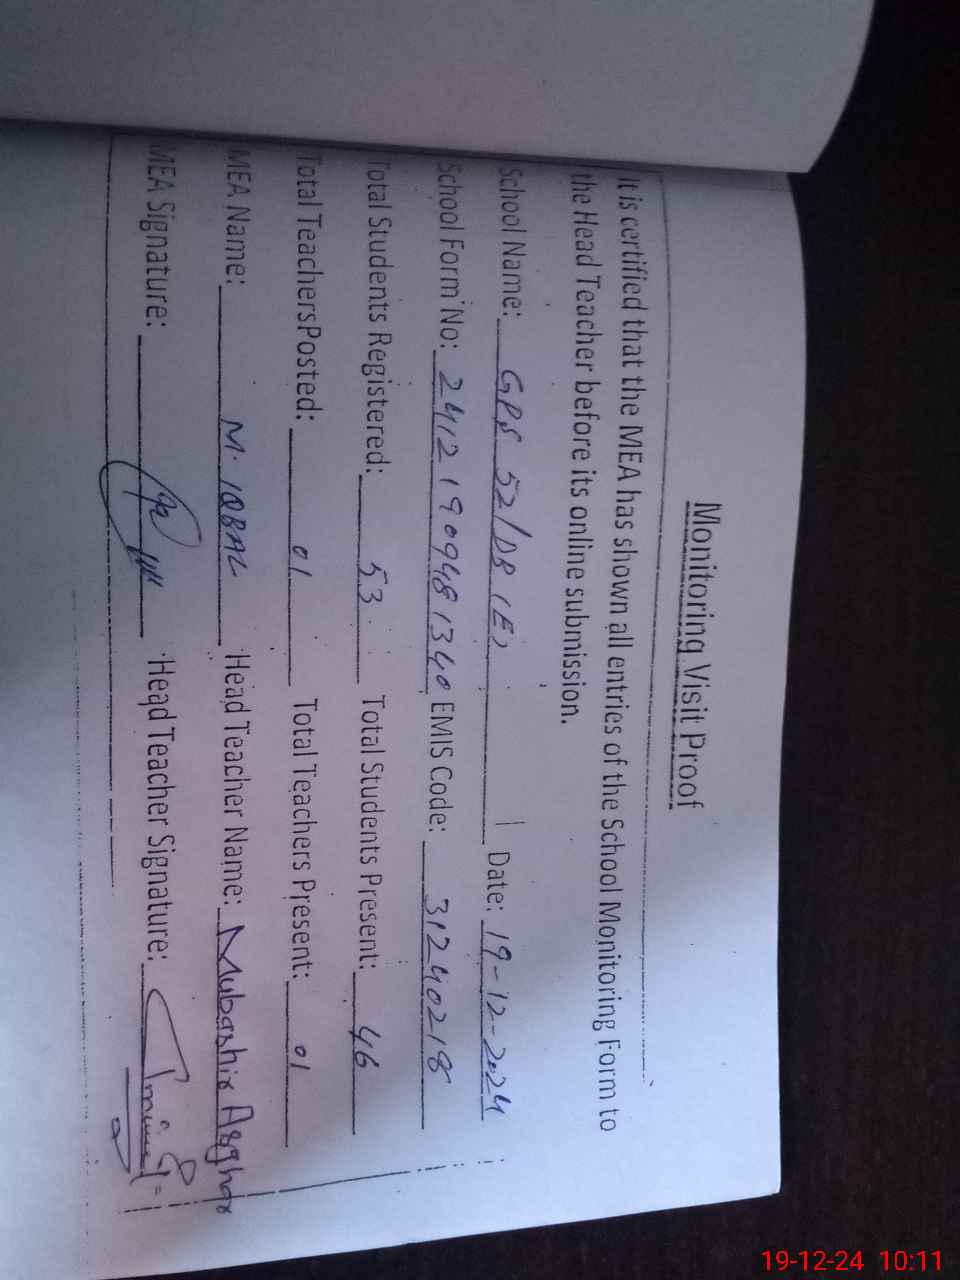 Monitoring Visit Proof
It is certified that the MEA has shown all entries of the School Monitoring Form to
the Head Teacher before its online submission.
School Name: GPS 52/DB (E) Date: 19-12-2024
School Form No: 24121909481340 EMIS Code: 31240218
Total Students Registered: 53 Total Students Present: 46
Total TeachersPosted: 01 Total Teachers Present: 01
MEA Name: M. IQBAL Head Teacher Name: Mubashir Asghar
MEA Signature: Head Teacher Signature:
19-12-24 10:11